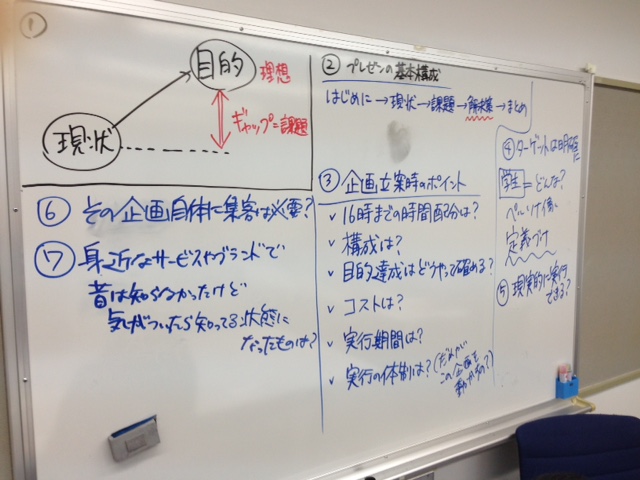 ①
目的
理想
現状
ギャップ=課題
② プレゼンの基本構成
はじめに→現状→課題→解決策→まとめ
③ 企画立案時のポイント
✓ 16時までの時間配分は?
✓ 構成は?
✓ 目的達成はどうやって確める?
✓ コストは?
✓ 実行期間は?
✓ 実行の体制は?(だれが
この企画を
動かすの?)
④ ターゲットは明確に
学生=どんな?
定義づけ
⑤ 現実的に実行
できる?
⑥ その企画自体に集客は必要?
⑦ 身近なサービスやブランドで
昔は知らなかったけど
気がついたら知ってる状態に
なったものは?